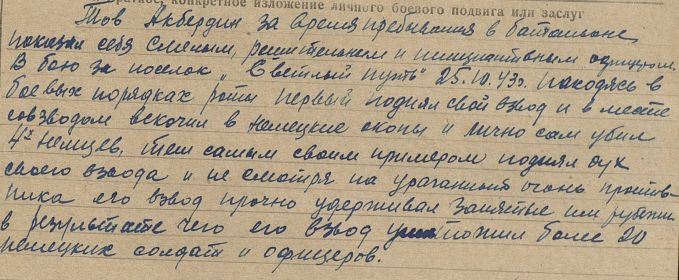 Краткое, конкретное изложение личного боевого подвига или заслуг
Тов Акбердин за время пребывания в батальоне,
показал себя смелым, решительным и инициативным офицером.
В бою за поселок „Светлый путь" 25.10.43г. находясь в
боевых порядках роты первый поднял свой взвод и в месте
со взводом вскочил в немецкие окопы и лично сам убил
4х немцев, тем самым своим примером поднял дух
своего взвода и не смотря на ураганный огонь против-
ника его взвод прочно удерживал занятые им рубежи
в результате чего его взвод уничтожил более 20
немецких солдат и офицеров.